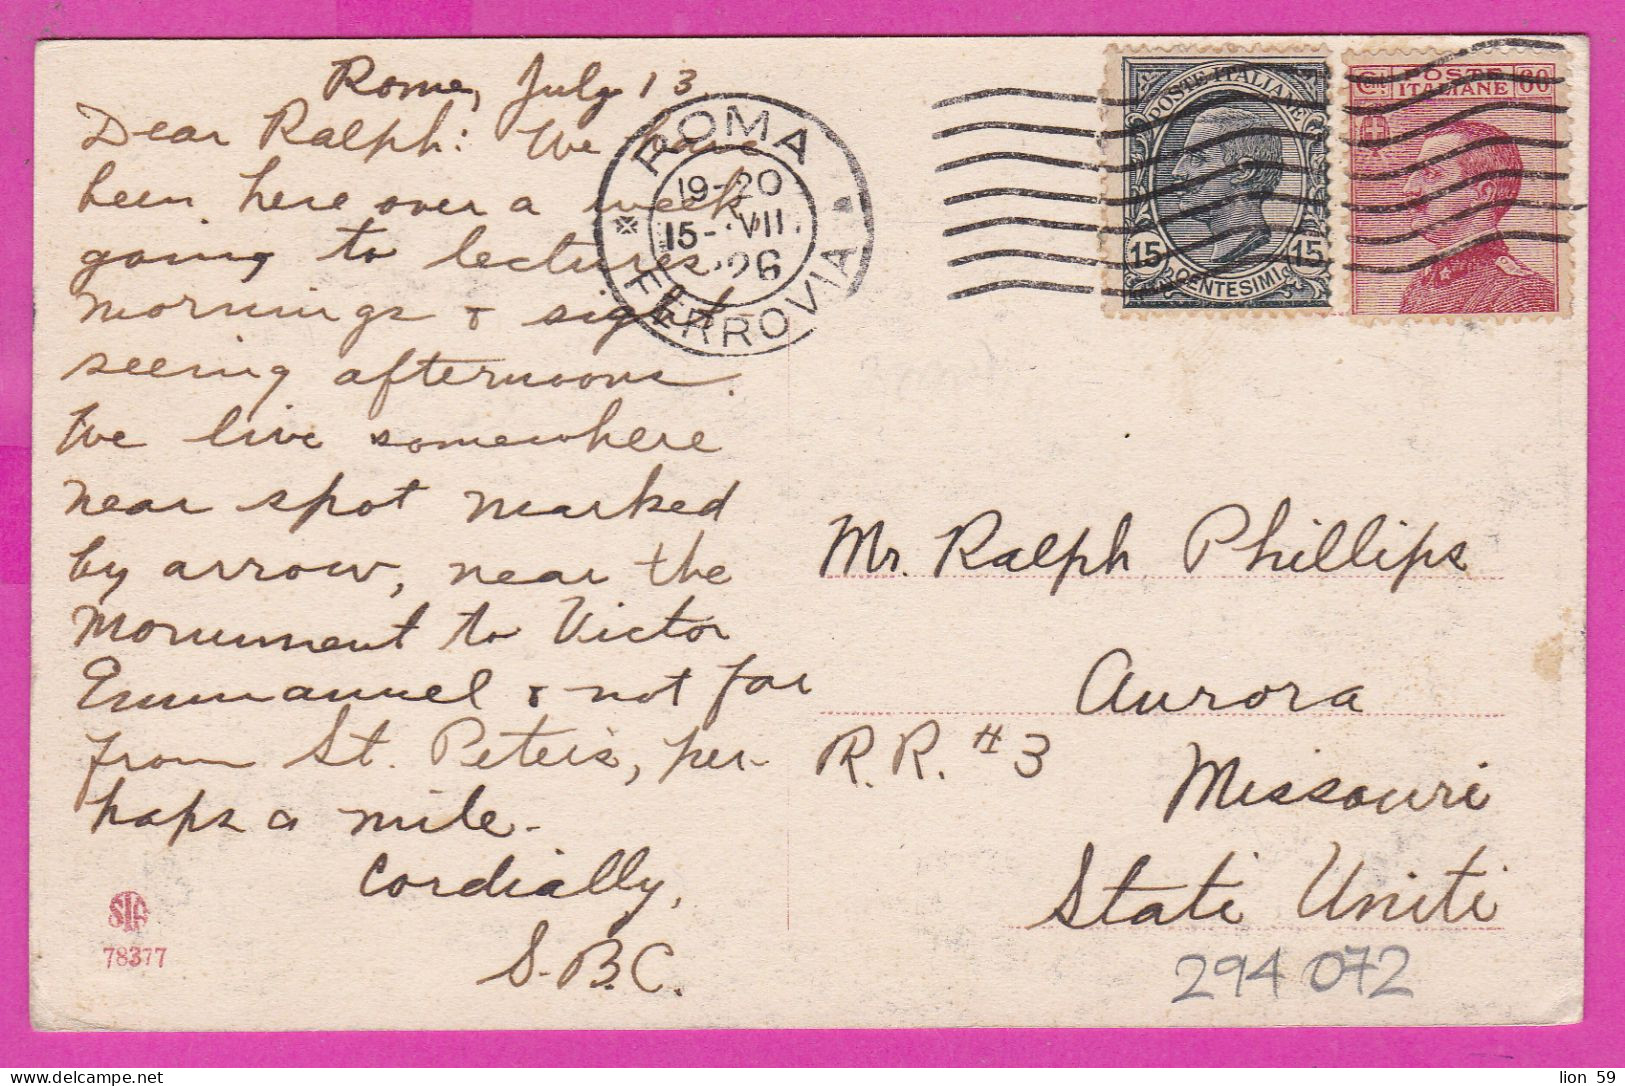 Rome, July 13.
Dear Ralph: We have
been here over a week
going to lectures
mornings & sight
seeing afternoons.
We live somewhere
near spot marked
by arrow, near the
Monument to Victor
Emmanuel & not far
from St. Peter's, per-
haps a mile.
Cordially,
S.B.C.
SIA
78377
ROMA
19-20
15-VII
26
FERROVIA
POSTE ITALIANE
15 15
CENTESIMI
Ct. POSTE 60
ITALIANE
Mr. Ralph Phillips
Aurora
R.R. #3
Missouri
Stati Uniti
294 072
lion 59